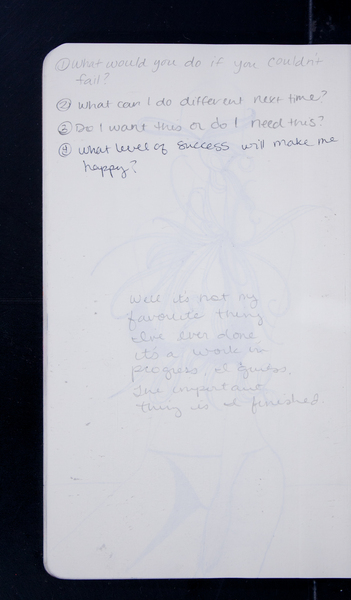 ① What would you do if you couldn't
fail?
② What can I do different next time?
③ Do I want this or do I need this?
④ What level of success will make me
happy?
Well its not my
favorite thing
I've ever done
it's a work in
progress, I guess.
The important
thing is I finished.